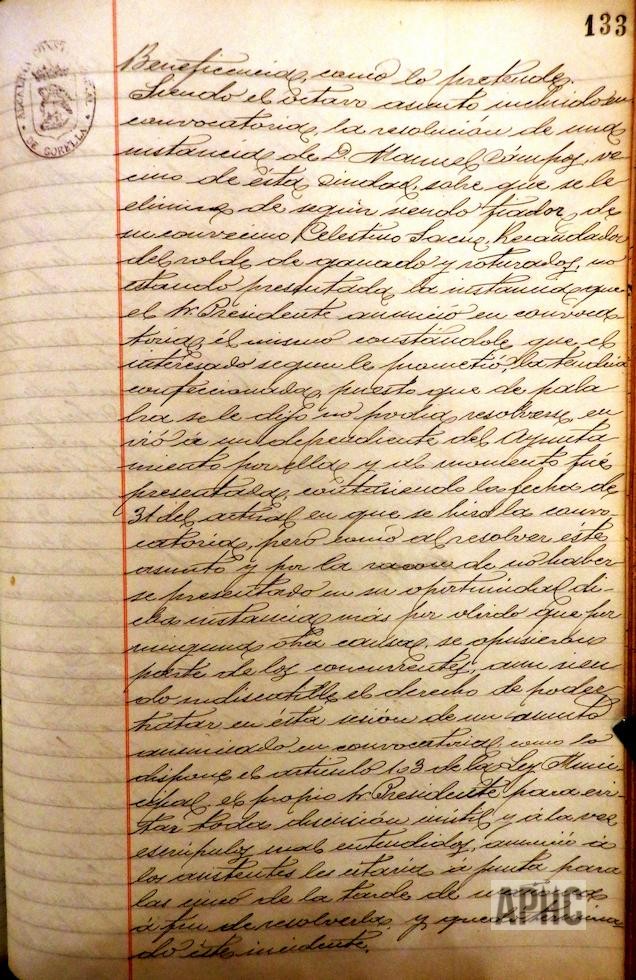 133
ALCALDIA CONSTITUCIONAL
DE CORELLA
Beneficencia, como lo pretende.
Siendo el octavo asunto incluido en
convocatoria, la resolución de una
instancia de D. Manuel Cámpos, ve-
cino de ésta Ciudad, sobre que se le
elimine de seguir siendo fiador de
su convecino Celestino Sáenz, Recaudador
del rolde de ganado y roturados, no
estando presentada la instancia que
el Sr. Presidente anunció en convoca-
toria, él mismo constándole que el
interesado segun le prometió, la tendría
confeccionada, puesto que de pala-
bra se le dijo no podía resolverse, en-
vió á un dependiente del Ayunta-
miento por ella, y al momento fué
presentada, conteniendo la fecha de
31 del actual en que se hizo la convo-
catoria, pero como al resolver éste
asunto y por la razon de no haber-
se presentado en su oportunidad di-
cha instancia más por olvido que por
ninguna otra causa, se opusieron
parte de los concurrentes, aun sien-
do indiscutible el derecho de poder
tratar en ésta sesión de un asunto
anunciado en convocatoria, como lo
dispone el artículo 103 de la Ley Muni-
cipal, el propio Sr. Presidente para evi-
tar toda discusión inútil y á la vez
escrúpulos mal entendidos, anunció á
los asistentes les citaría á junta para
las cinco de la tarde de mañana
á fin de resolverla, y quedó termina-
do éste incidente.
APHC